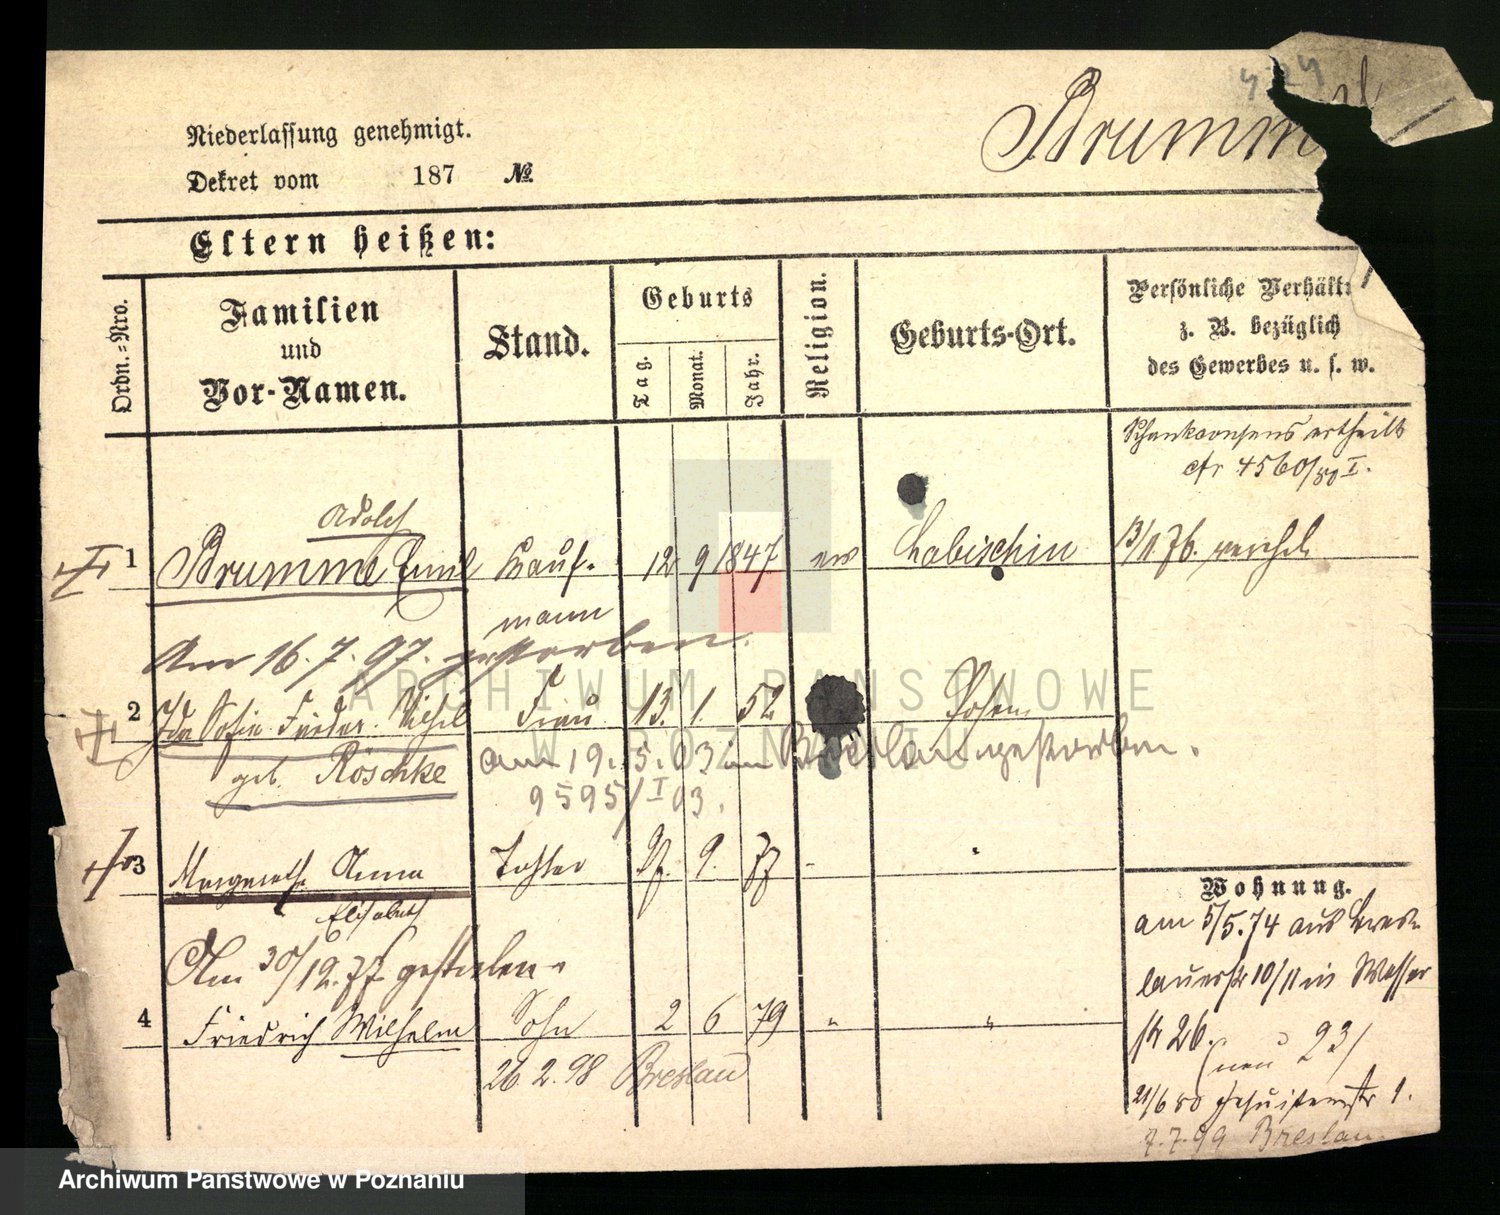 4 24
Brumme
Niederlassung genehmigt.
Dekret vom 187 №
Eltern heißen:
Ordn.-Nro.
Familien
und
Vor-Namen.
Stand.
Geburts
Tag.
Monat.
Jahr.
Religion.
Geburts-Ort.
Persönliche Verhält
z. B. bezüglich
des Gewerbes u. s. w.
Schankconsens ertheilt
cfr 4560/80 I.
Adolf
1 Brumme Emil Kauf- 12 9 1847 ev Labischin 13/1.76.
mann
Am 16.7.97. gestorben.
2 Ida Sofie Frieder. Wilhel Frau 13. 1. 52 Posen
geb. Röschke am 19.5.03 in Breslau gestorben.
9595/I 03.
3 Margarethe Anna Tochter 27. 9. 77 - "
Elisabeth
Am 30/12.77 gestorben.
4 Friedrich Wilhelm Sohn 2 6 79 " "
26.2.98 Breslau
Wohnung.
am 5/5.74 aus Bres-
lauerstr 10/11 in Wasser
str 26.
(neu 23)
21/6 80 Jesuitenstr 1.
7.7.99 Breslau
ARCHIWUM PAŃSTWOWE
W POZNANIU
Archiwum Państwowe w Poznaniu